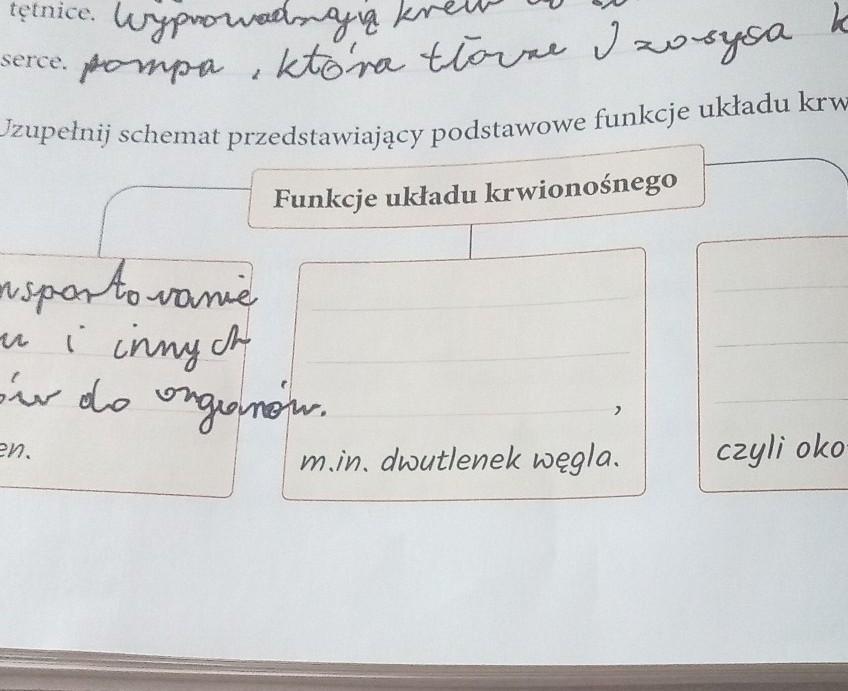 tętnice. Wyprowadzają krew
serce. pompa, która tłocze I zasysa k
Uzupełnij schemat przedstawiający podstawowe funkcje układu krw
Funkcje układu krwionośnego
nsportowanie
u i innych
ów do organów.
en.
,
m.in. dwutlenek węgla.
czyli oko